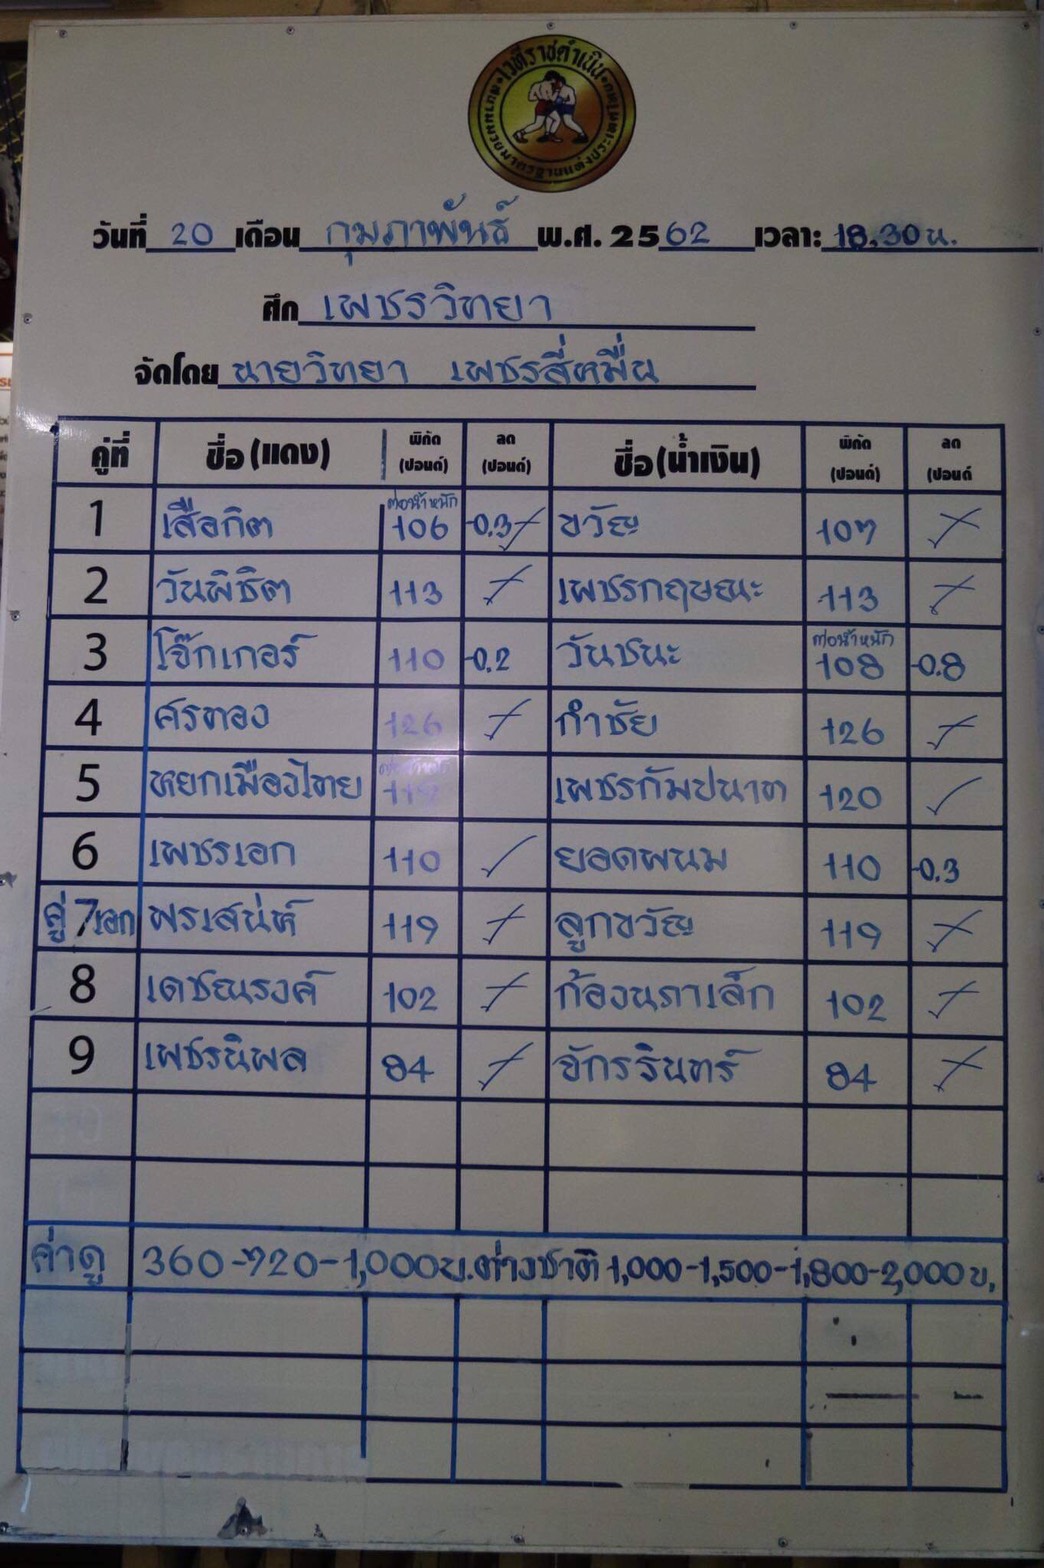 วันที่ 20 เดือน กุมภาพันธ์ พ.ศ. 2562 เวลา: 18.30 น.
ศึก เพชรวิทยา
จัดโดย นายวิทยา เพชรสี่หมื่น
คู่ที่ ชื่อ (แดง) พิกัด (ปอนด์) ลด (ปอนด์) ชื่อ (น้ำเงิน) พิกัด (ปอนด์) ลด (ปอนด์
1 เสือกิต ต่อน้ำหนัก 106 -0.3 ขวัญ 107
2 วันพิชิต 113 เพชรกฤษณะ 113
3 โจ๊กเกอร์ 110 -0.2 วันชนะ ต่อน้ำหนัก 108 -0.8
4 ศรทอง 126 กำชัย 126
5 หยกเมืองไทย เพชรกัมปนาท 120
6 เพชรเอก 110 ยอดพนม 110 -0.3
คู่ 7 เอก พรเสน่ห์ 119 ลูกขวัญ 119
8 เดชณรงค์ 102 ก้องนภาเล็ก 102
9 เพชรนิพล 84 จักรรินทร์ 84
ค่าดู 360-720-1,000บ. ต่างชาติ 1,000-1,500-1,800-2,000บ.